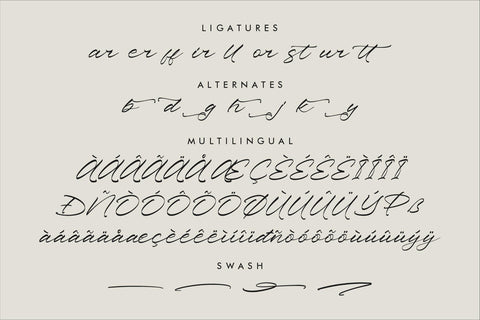 LIGATURES
ar er ff ir ll or st ur tt
ALTERNATES
b d g h j k y
MULTILINGUAL
ÀÁÂÃÄÅÆÇÈÉÊËÌÍÎÏ
ÐÑÒÓÔÕÖØÙÚÛÜÝÞß
àáâãäåæçèéêëìíîïđñòóôõöùúûüýÿ
SWASH